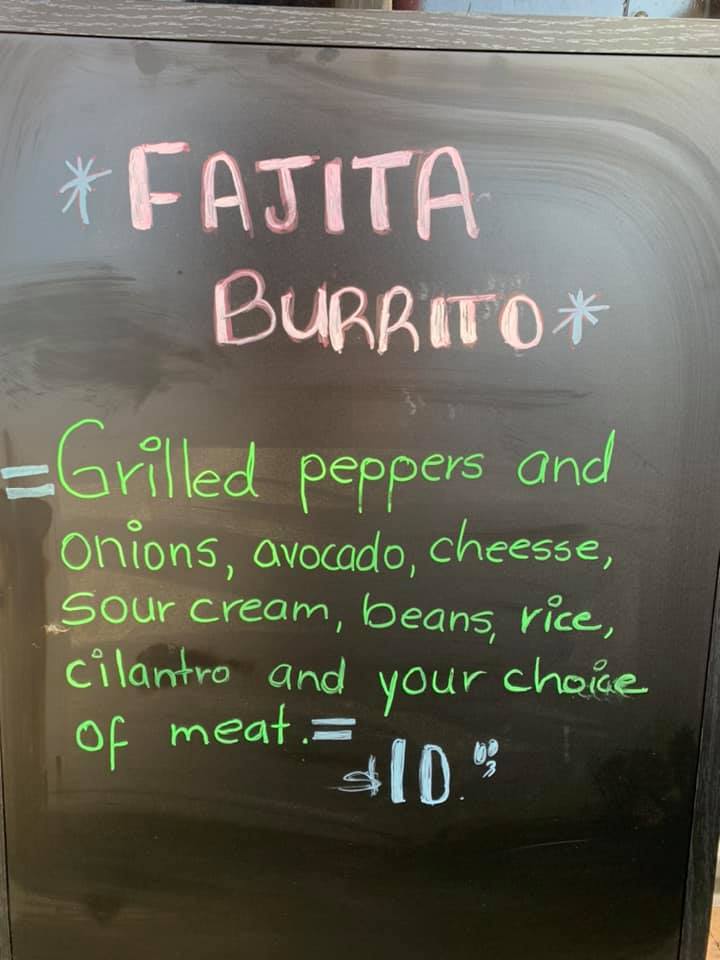 *FAJITA
BURRITO*
=Grilled peppers and
onions, avocado, cheesse,
sour cream, beans, rice,
cilantro and your choice
of meat.=
$10.00